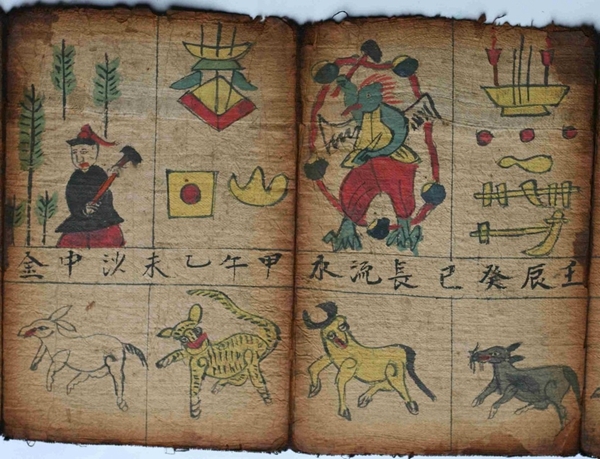 壬辰癸巳長流水
甲午乙未沙中金